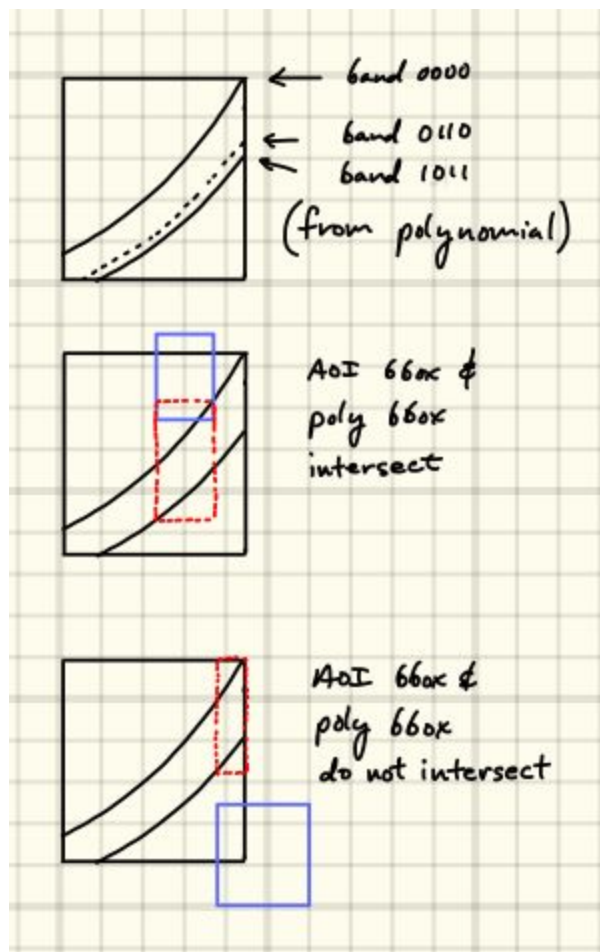 band 0000
band 0110
band 1011
(from polynomial)
AOI bbox &
poly bbox
intersect
AOI bbox &
poly bbox
do not intersect